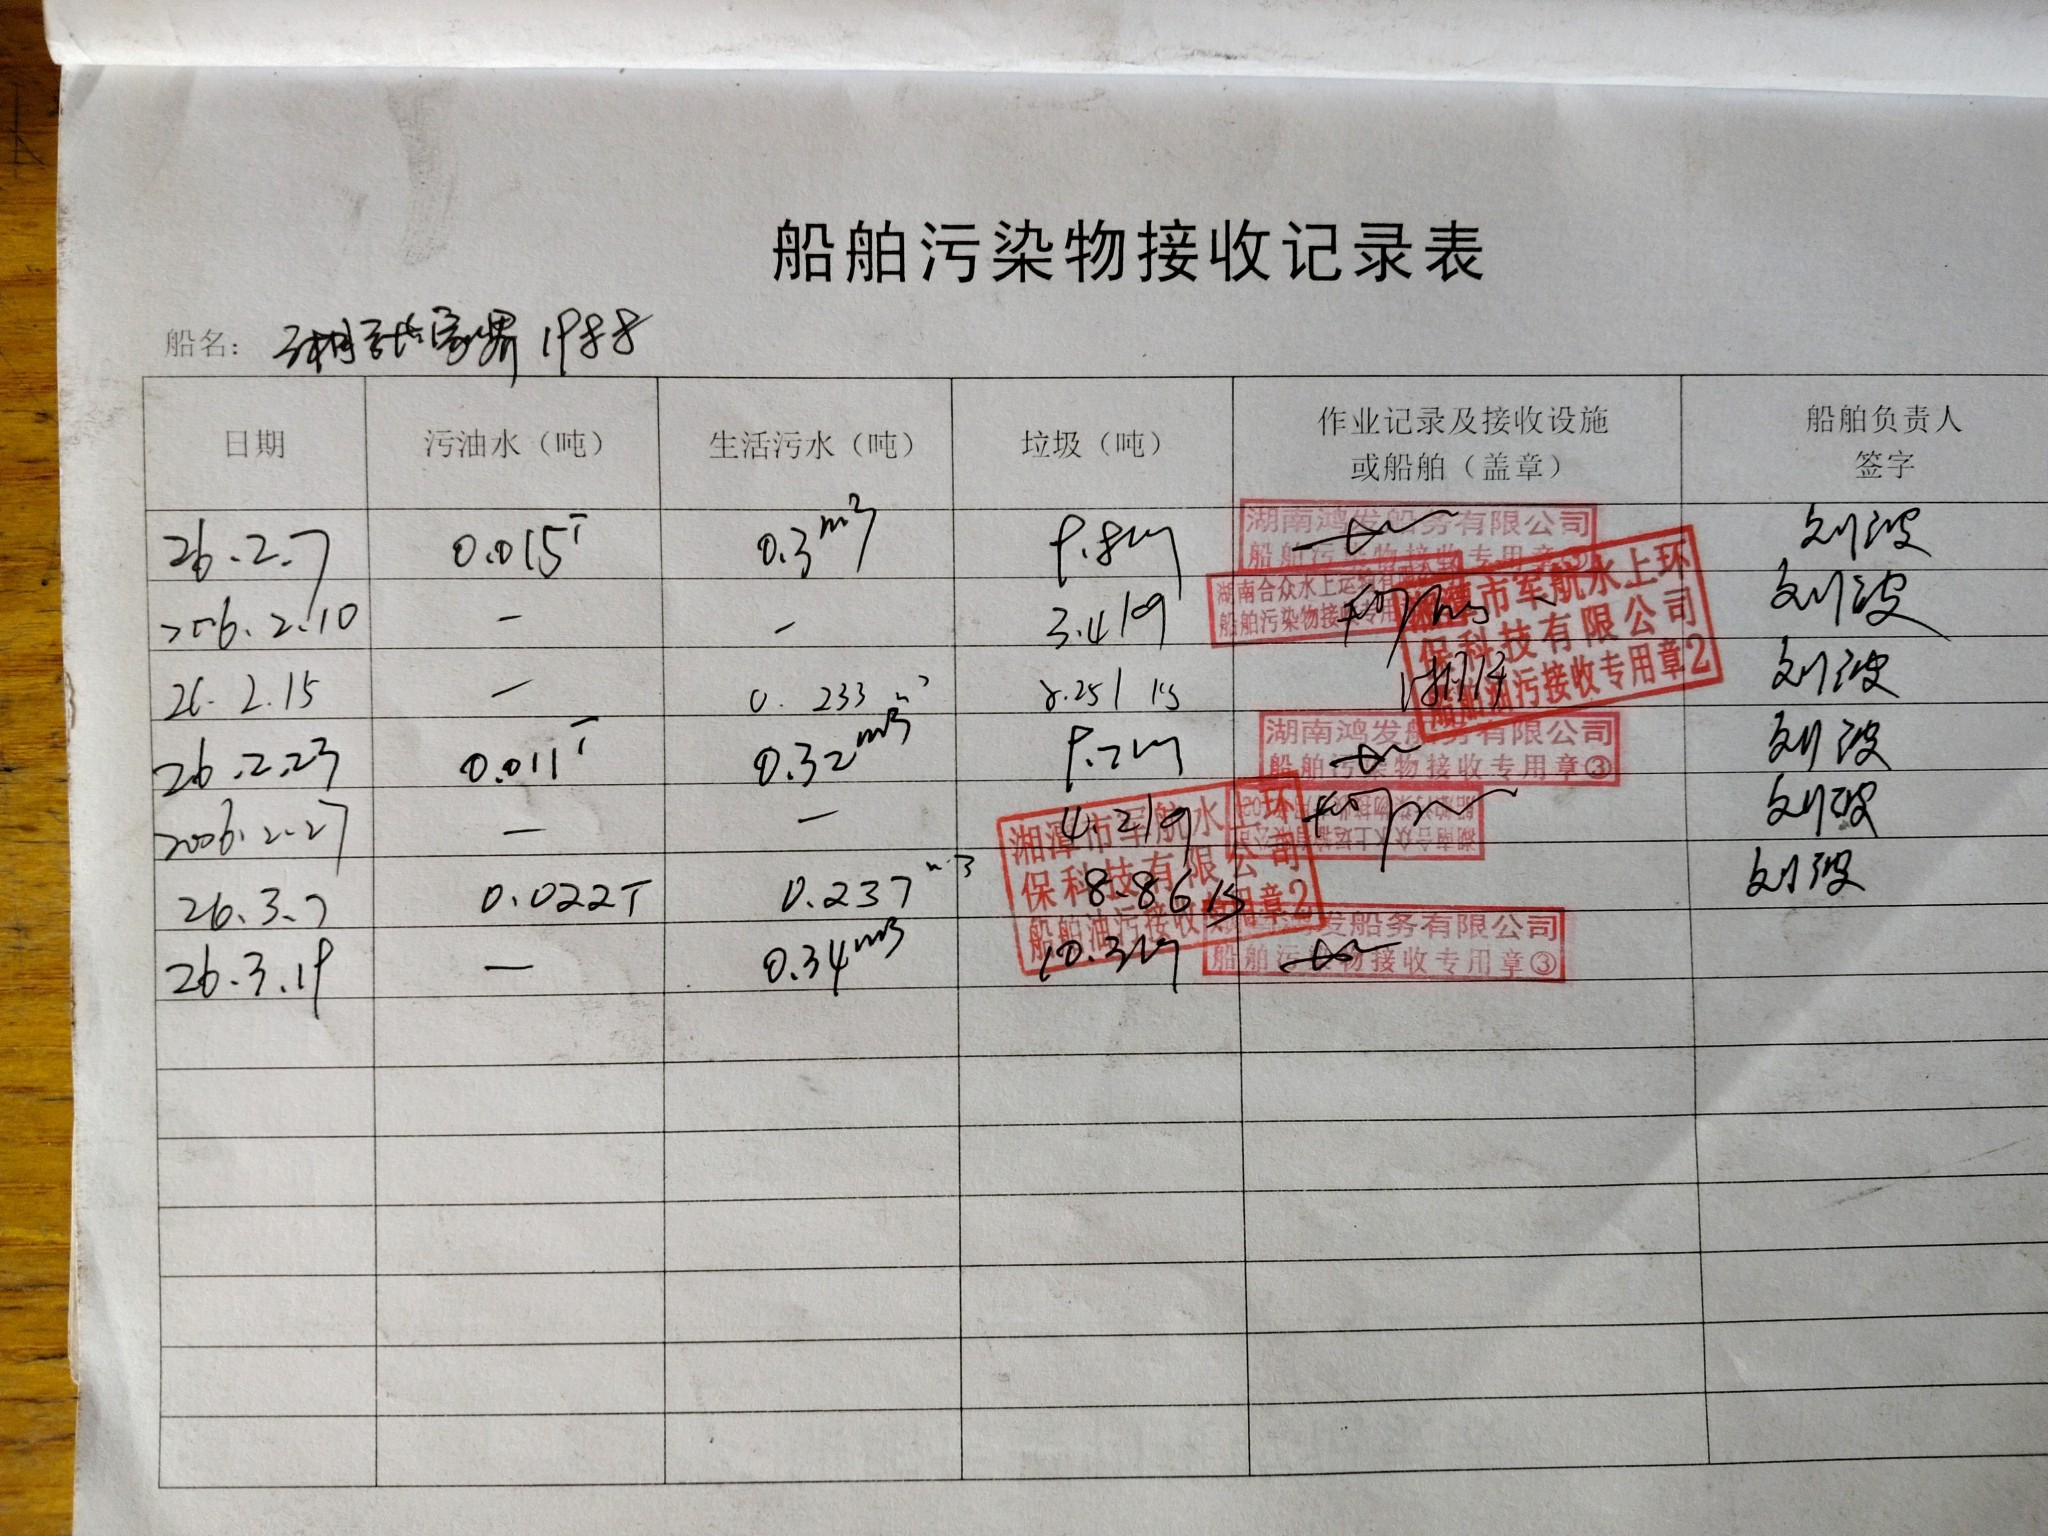 船舶污染物接收记录表
船名: 湘张家界 1988
日期 污油水（吨） 生活污水（吨） 垃圾（吨） 作业记录及接收设施或船舶（盖章） 船舶负责人签字
26.2.7 0.015T 0.3m3 9.8 刘波
湖南鸿发船务有限公司
船舶污染物接收专用章
2006.2.10 — — 3.4 刘波
湖南合众水上运
船舶污染物接收专用
26.2.15 — 0.233 刘波
湘潭市军航水上环
保科技有限公司
船舶油污接收专用章2
26.2.23 0.011T 0.32m3 9.2 刘波
湖南鸿发船务有限公司
船舶污染物接收专用章③
2006.2.27 — — 4.2 刘波
26.3.7 0.022T 0.237 m3 8.86 刘波
湘潭市军航水上环
保科技有限公司
船舶油污接收专用章2
26.3.19 — 0.34m3 10.3
发船务有限公司
船舶污染物接收专用章③